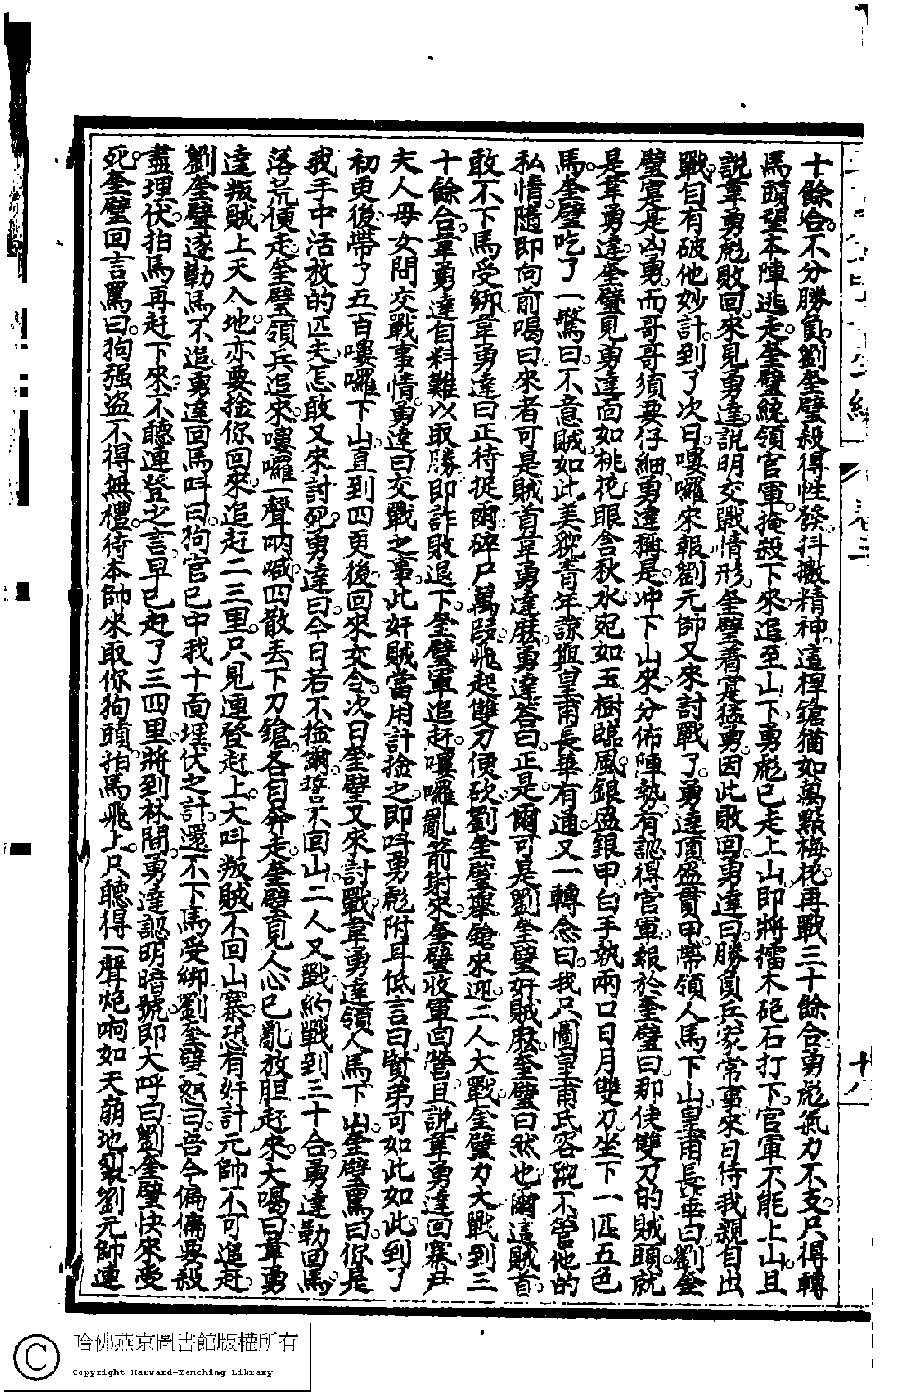 十餘合。不分勝負。劉奎璧殺得性發。抖擻精神。這桿鎗猶如萬點梅花。再戰三十餘合。勇彪氣力不支。只得轉
馬頭望本陣逃走。奎璧統領官軍。掩殺下來。追至山下。勇彪已走上山。即將擂木砲石打下。官軍不能上山。且
說韋勇彪敗回。來見勇達。說明交戰情形。奎璧着寔猛勇。因此敗回。勇達曰。勝負兵家常事。來日待我親自出
戰。自有破他妙計。到了次日。嘍囉來報。劉元帥又來討戰了。勇達頂盔貫甲。帶領人馬下山。皇甫長華曰。劉奎
璧寔是凶勇。而哥哥須要仔細。勇達稱是。冲下山來。分佈陣勢。有認得官軍。報於奎璧曰。那使雙刀的賊頭。就
是韋勇達。奎璧見勇達面如桃花。眼含秋水。宛如玉樹臨風。銀盔銀甲。白手執兩口日月雙刀。坐下一匹五色
馬。奎璧吃了一驚曰。不意賊如此美貌青年。諒與皇甫長華有通。又一轉念曰。我只圖皇甫氏容貌。不管他的
私情。隨即向前喝曰。來者可是賊首韋勇達麽。勇達答曰。正是。爾可是劉奎璧奸賊。奎璧曰。然也。爾這賊首
敢不下馬受綁。韋勇達曰。正待捉爾碎尸萬段。飛起雙刀便砍。劉奎璧舉鎗來迎。二人大戰。奎璧力大。戰到三
十餘合。韋勇達自料難以取勝。即詐敗退下。奎璧軍追赶。嘍囉亂箭射來。奎璧收軍回營。且說韋勇達回寨。尹
夫人母女問交戰事情。勇達曰。交戰之事。此奸賊當用計擒之。即呌勇彪附耳低言曰。賢弟可如此如此。到了
初更後。帶了五百嘍囉下山。直到四更後。回來交令。次日奎璧又來討戰。韋勇達領人馬下山。奎璧罵曰。你是
我手中活放的匹夫。怎敢又來討死。勇達曰。今日若不擒爾。誓不回山。二人又戰約戰到三十合。勇達勒回馬
落荒便走。奎璧領兵追來。嘍囉一聲吶喊。四散丟下刀鎗。各自奔走。奎璧見人心已亂。放胆赶來。大喝曰。韋勇
達叛賊。上天入地。亦要擒你回來。追赶二三里。只見連登赶上大呌。叛賊不回山寨。恐有奸計。元帥不可追赶。
劉奎璧遂勒馬不追。勇達回馬呌曰。狗官已中我十面埋伏之計。還不下馬受綁。劉奎璧怒曰。吾今偏偏要殺
盡埋伏。拍馬再赶下來。不聽連登之言。早已赶了三四里。將到林間。勇達認明暗號。即大呼曰。劉奎璧快來受
死。奎璧回言罵曰。狗强盗不得無禮。待本帥來取你狗頭。拍馬飛上。只聽得一聲炮响。如天崩地裂。劉元帥連
卷三
十八
哈佛燕京圖書館版權所有
Copyright Harvard-Yenching Library